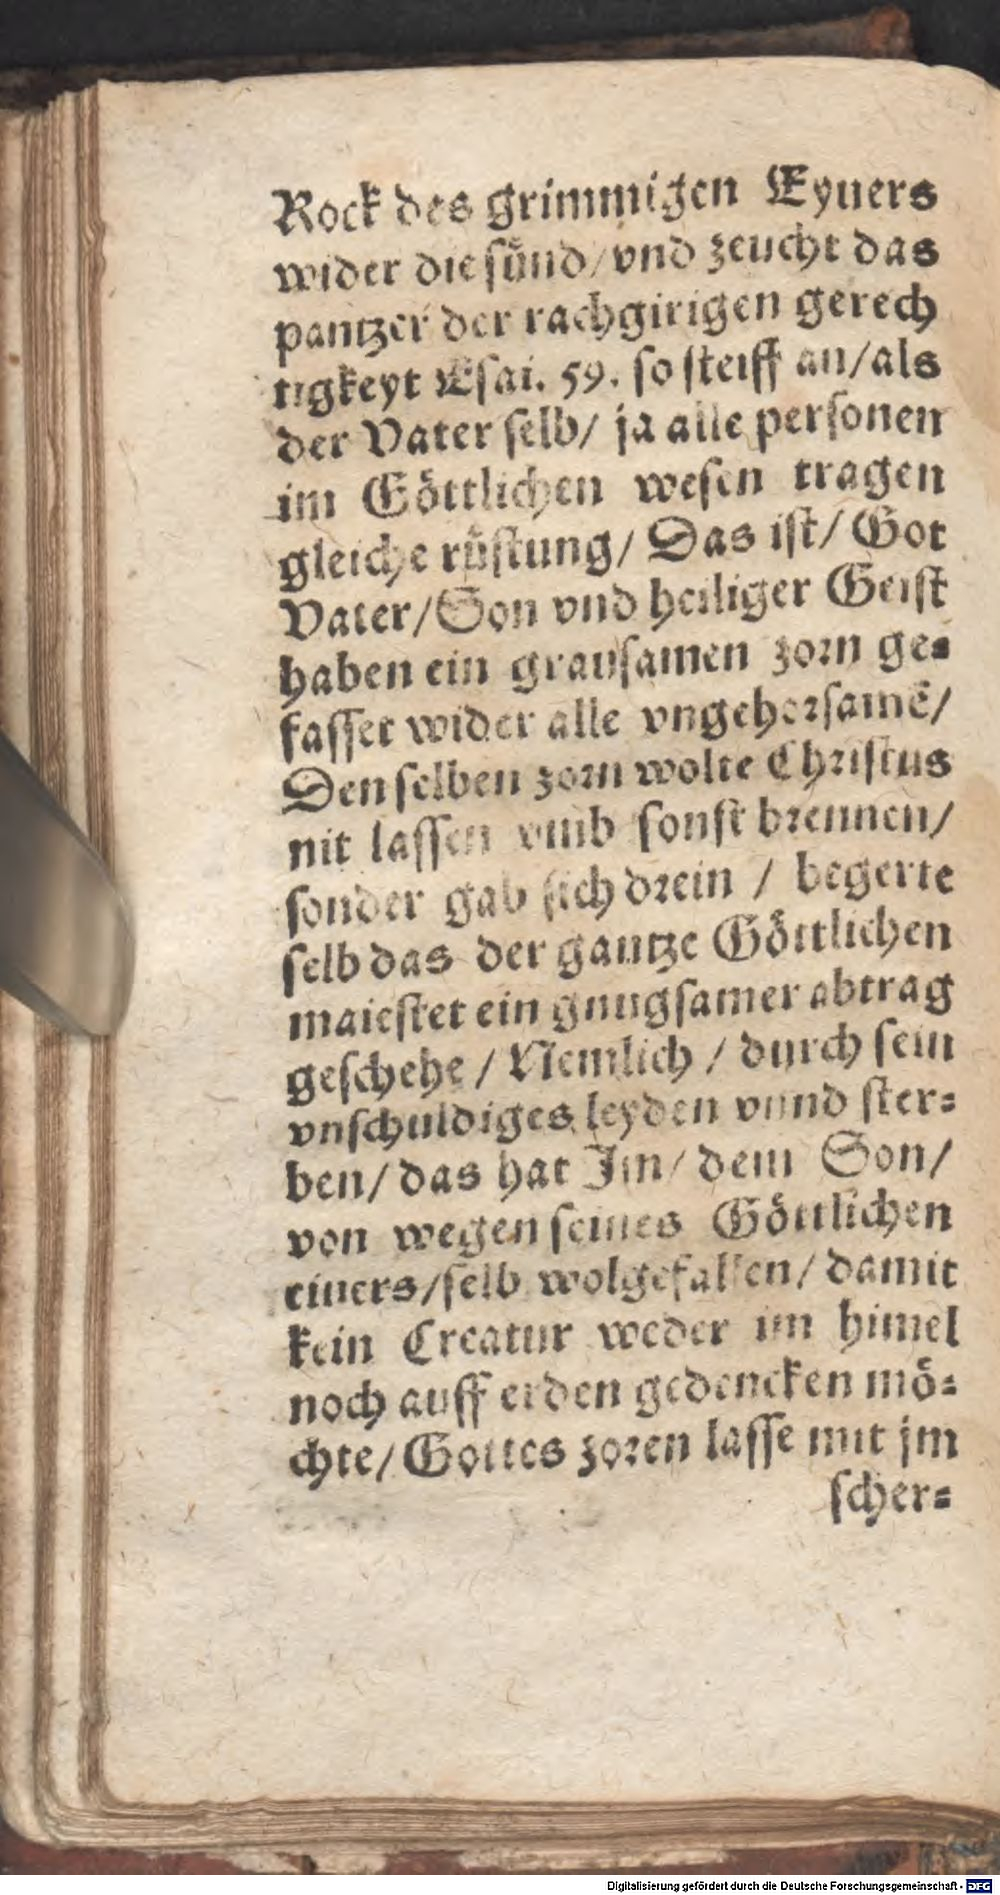 Rock des grimmigen Eyuers
wider die sünd/ vnd zeucht das
pantzer der rachgirigen gerech
tigkeyt Esai. 59. so steiff an/als
der Vater selb/ ja alle personen
im Göttlichen wesen tragen
gleiche rüstung/ Das ist/ Got
Vater/Son vnd heiliger Geist
haben ein grausamen zorn ge-
fasset wider alle vngehorsamē/
Denselben zorn wolte Christus
nit lassen vmb sonst brennen/
sonder gab sich drein / begerte
selb das der gantze Göttlichen
maiestet ein gnugsamer abtrag
geschehe / Nemlich / durch sein
vnschuldiges leyden vnnd ster-
ben/ das hat Im/ dem Son/
von wegen seines Göttlichen
eiuers/selb wolgefallen/ damit
kein Creatur weder im himel
noch auff erden gedencken mö-
chte/ Gottes zoren lasse mit jm
scher-
Digitalisierung gefördert durch die Deutsche Forschungsgemeinschaft - DFG